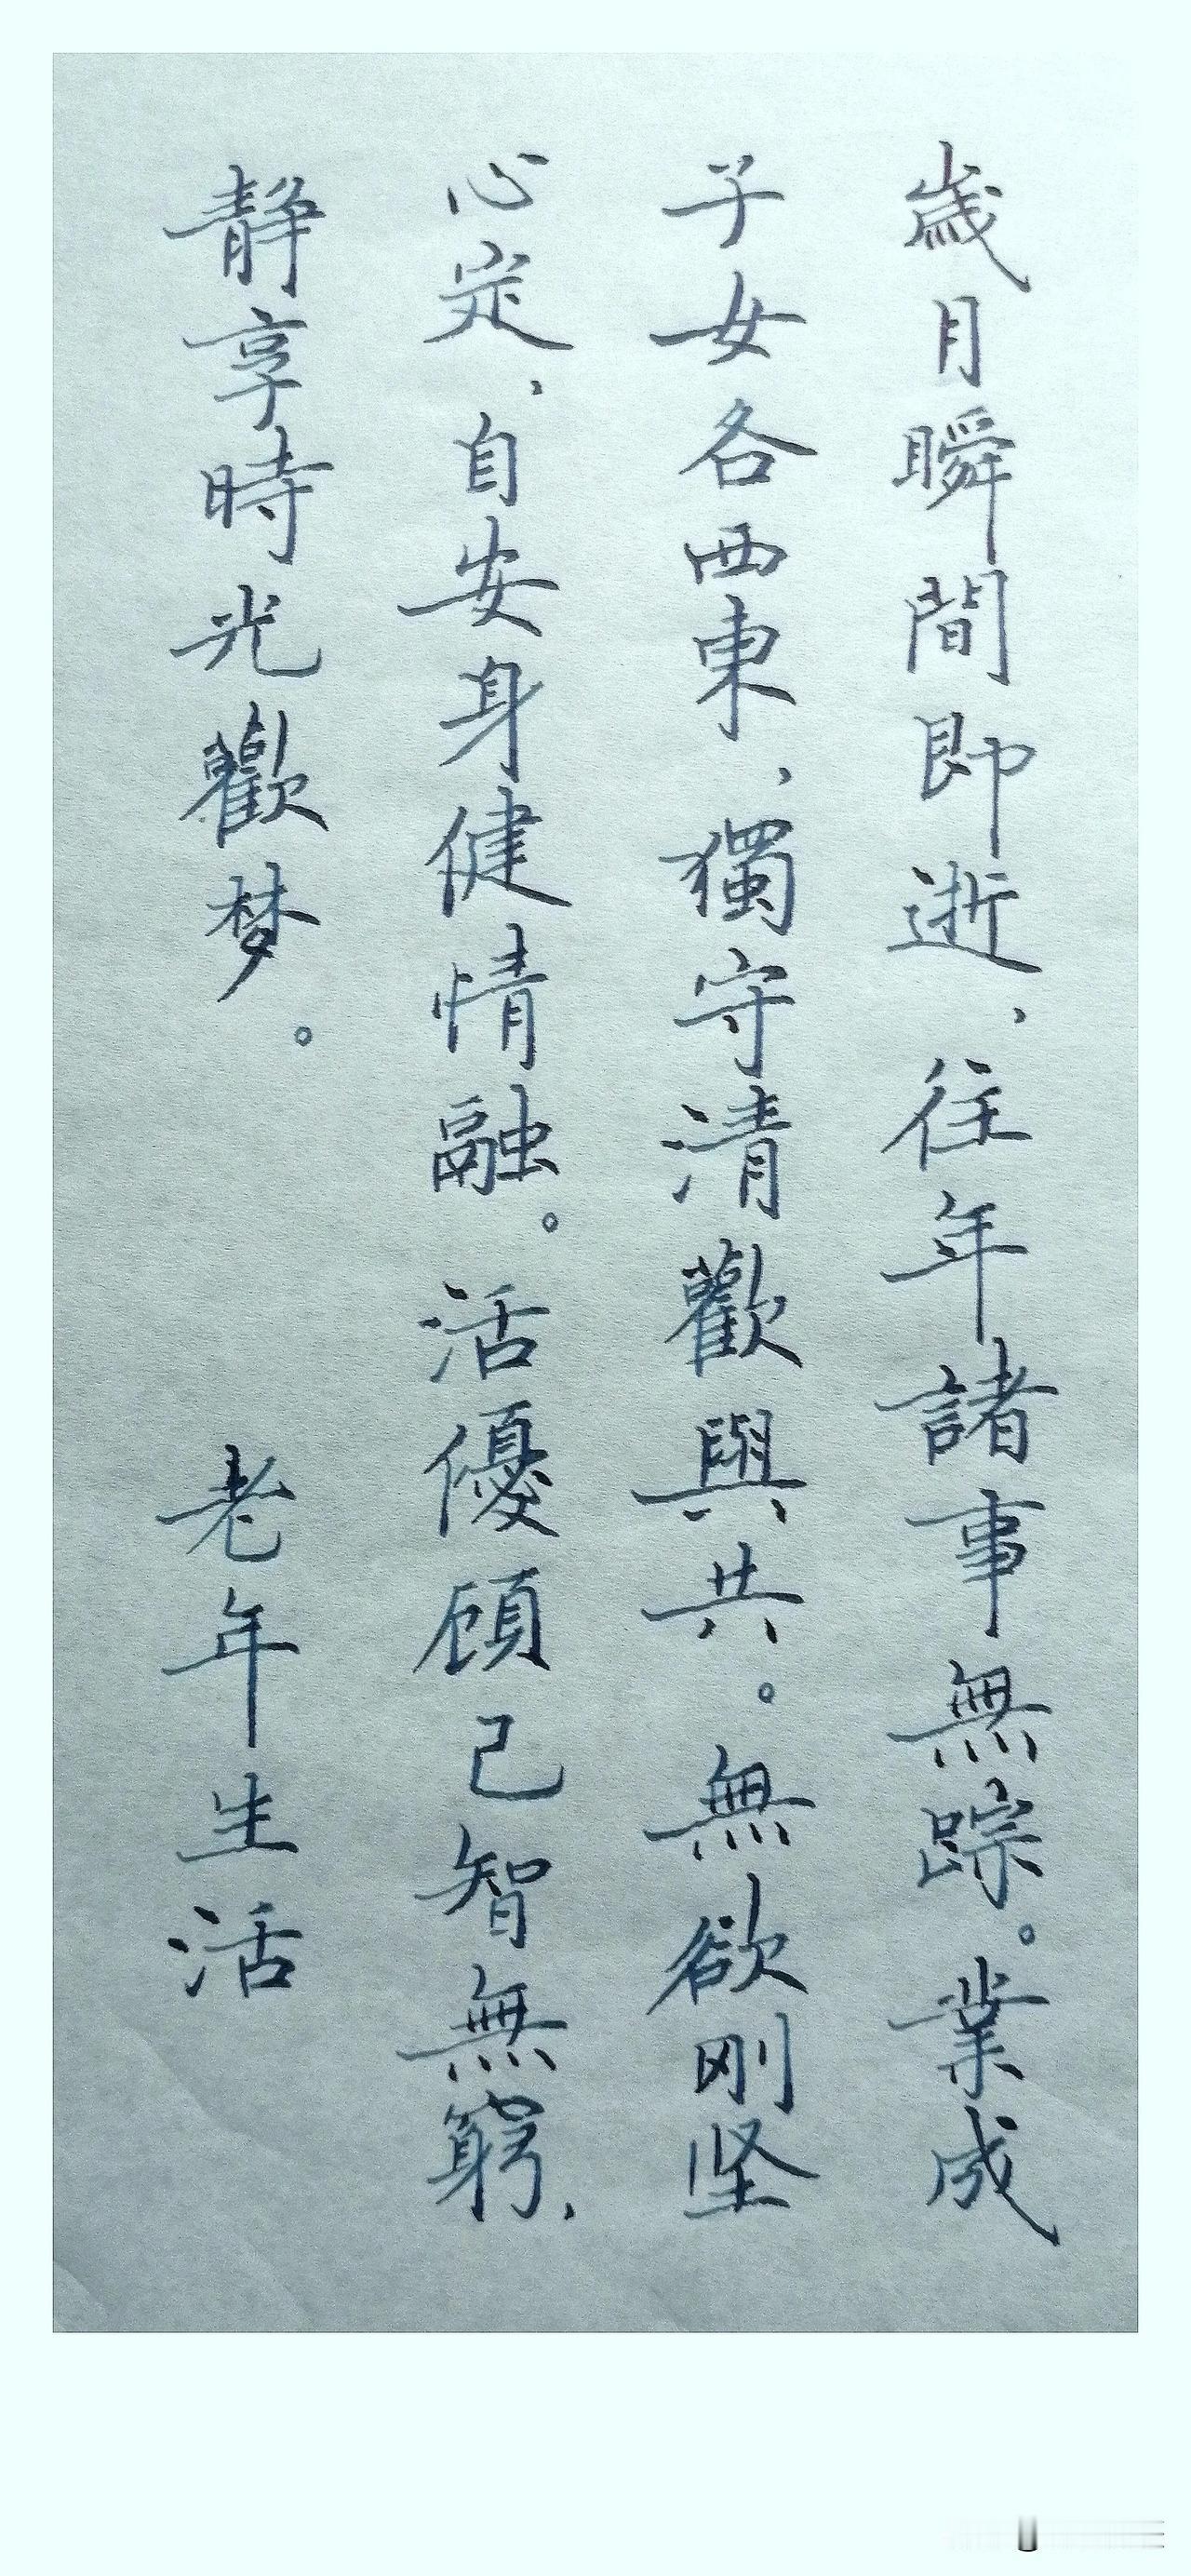 歲月瞬間即逝、往年諸事無踪。業成
子女各西東、獨守清歡與共。無欲刚坚
心定、自安身健情融。活優顾己智無窮、
靜享時光歡梦。 老年生活